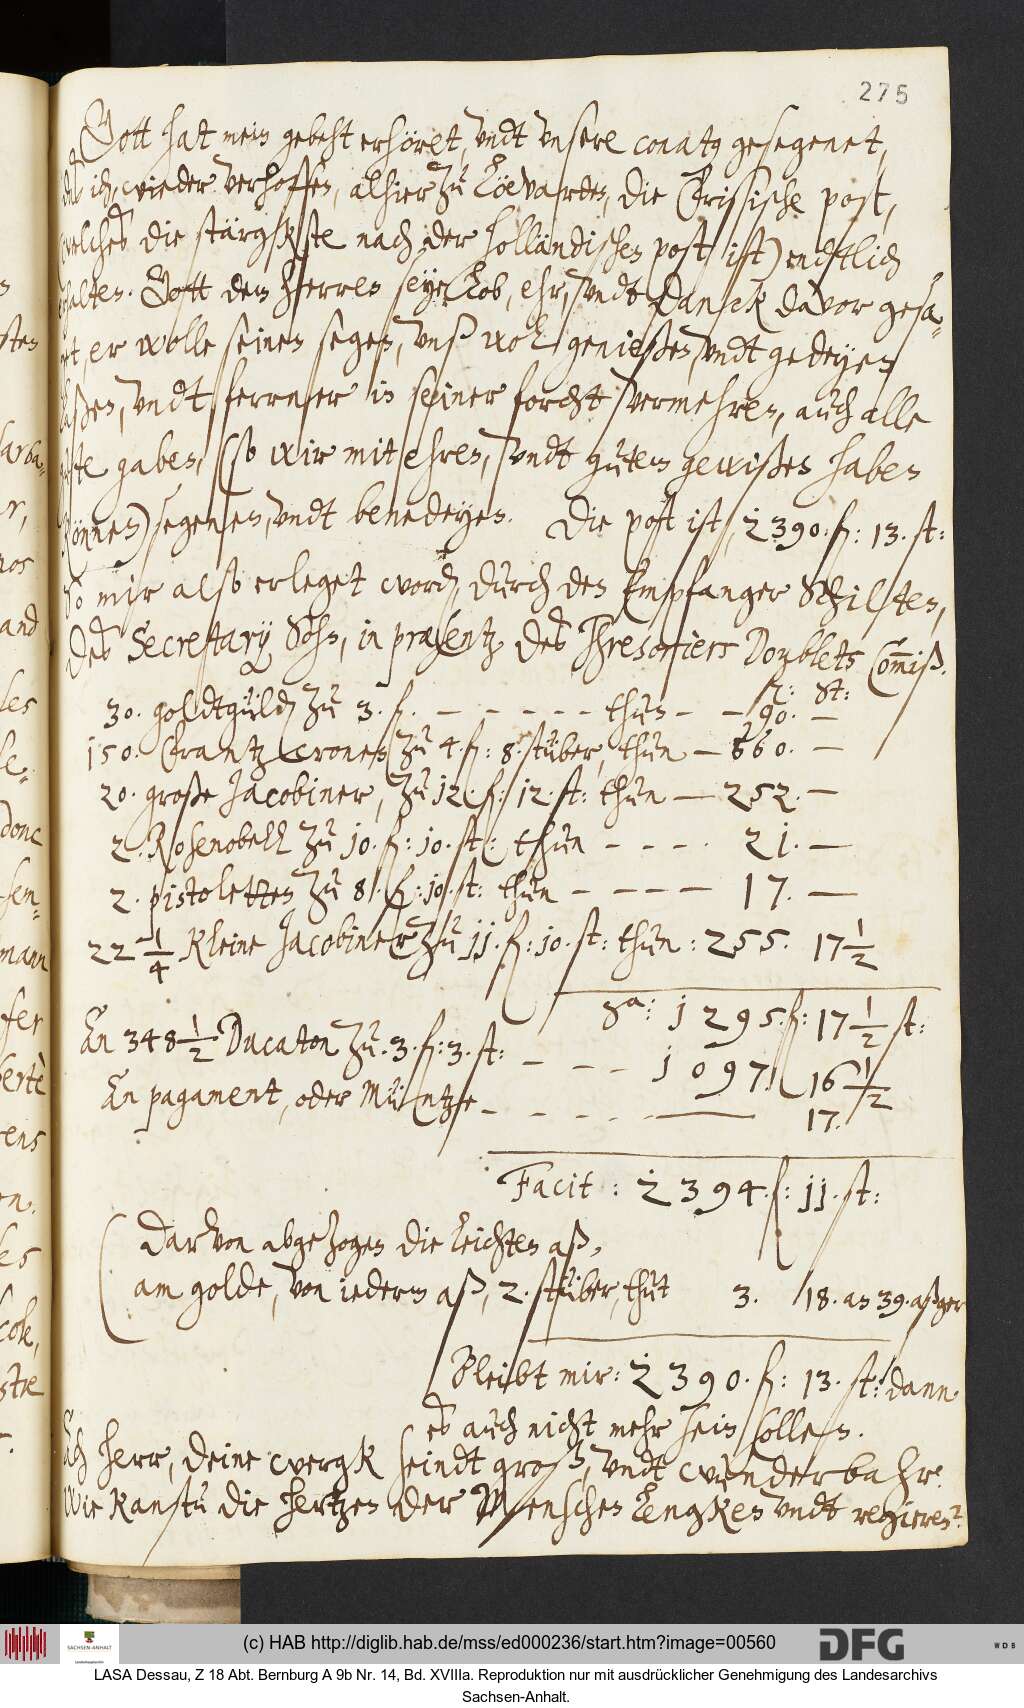 275
Gott hat mein gebeht erhöret, undt unsere conatg gesegenet,
daß ich, wieder verhoffen, alhier zu Löevarden, die Frisische post,
welches die stärgkste nach der Holländischen post ist) endtlich
erhalten. Gott dem Herren seye Lob, ehr, undt Danck davor gesa-
get, er wolle seinen segen, unß wol genießen, undt gedeyen
laßen, undt ferrner in seiner forcht vermehren, auch alle
gaben, (so wir mit ehren, undt gutem gewißen haben
können) segenen, undt benedeyen. Die post ist, 2390. fl: 13. st:
So mir also erleget word, durch den Empfanger Schilsten,
des Secretarÿ Sohn, in præsentz des Thresoriers Doublets Com̄iß.
fl: St:
30. goldtgüld zu 3. fl. — — — — — thun — — 90. —
150. Frantz Cronen zu 4. fl: 8. stüber, thun — 660. —
20. große Jacobiner, zu 12. fl: 12. st: thun — 252. —
2. Rosenobell zu 10. fl: 10. st: thun — — — . 21. —
2. pistoletten zu 8. fl: 10. st: thun — — — — 17. —
22 1/4 Kleine Jacobiner zu 11. fl: 10. st: thun: 255. 17 1/2
Sa: 1295. fl: 17 1/2 st:
An 348 1/2 Ducaton zu. 3. fl: 3. st: — — — 1097. 16 1/2
An pagament, oder Müntze — — — — — 17.
Facit: 2394. fl: 11. st:
(Darvon abgezogen die leichten aß,
am golde, von iedem aß, 2. stüber, thut 3. 18. an 39. aßger
Bleibt mir: 2390. fl: 13. st: dann
es auch nicht mehr sein sollen.
Ach Herr, deine wergk seindt groß, undt wunderbahr.
Wie kanstu die Hertzen der Menschen lengken undt regieren?
(c) HAB http://diglib.hab.de/mss/ed000236/start.htm?image=00560
SACHSEN-ANHALT
DFG
WDB
LASA Dessau, Z 18 Abt. Bernburg A 9b Nr. 14, Bd. XVIIIa. Reproduktion nur mit ausdrücklicher Genehmigung des Landesarchivs
Sachsen-Anhalt.